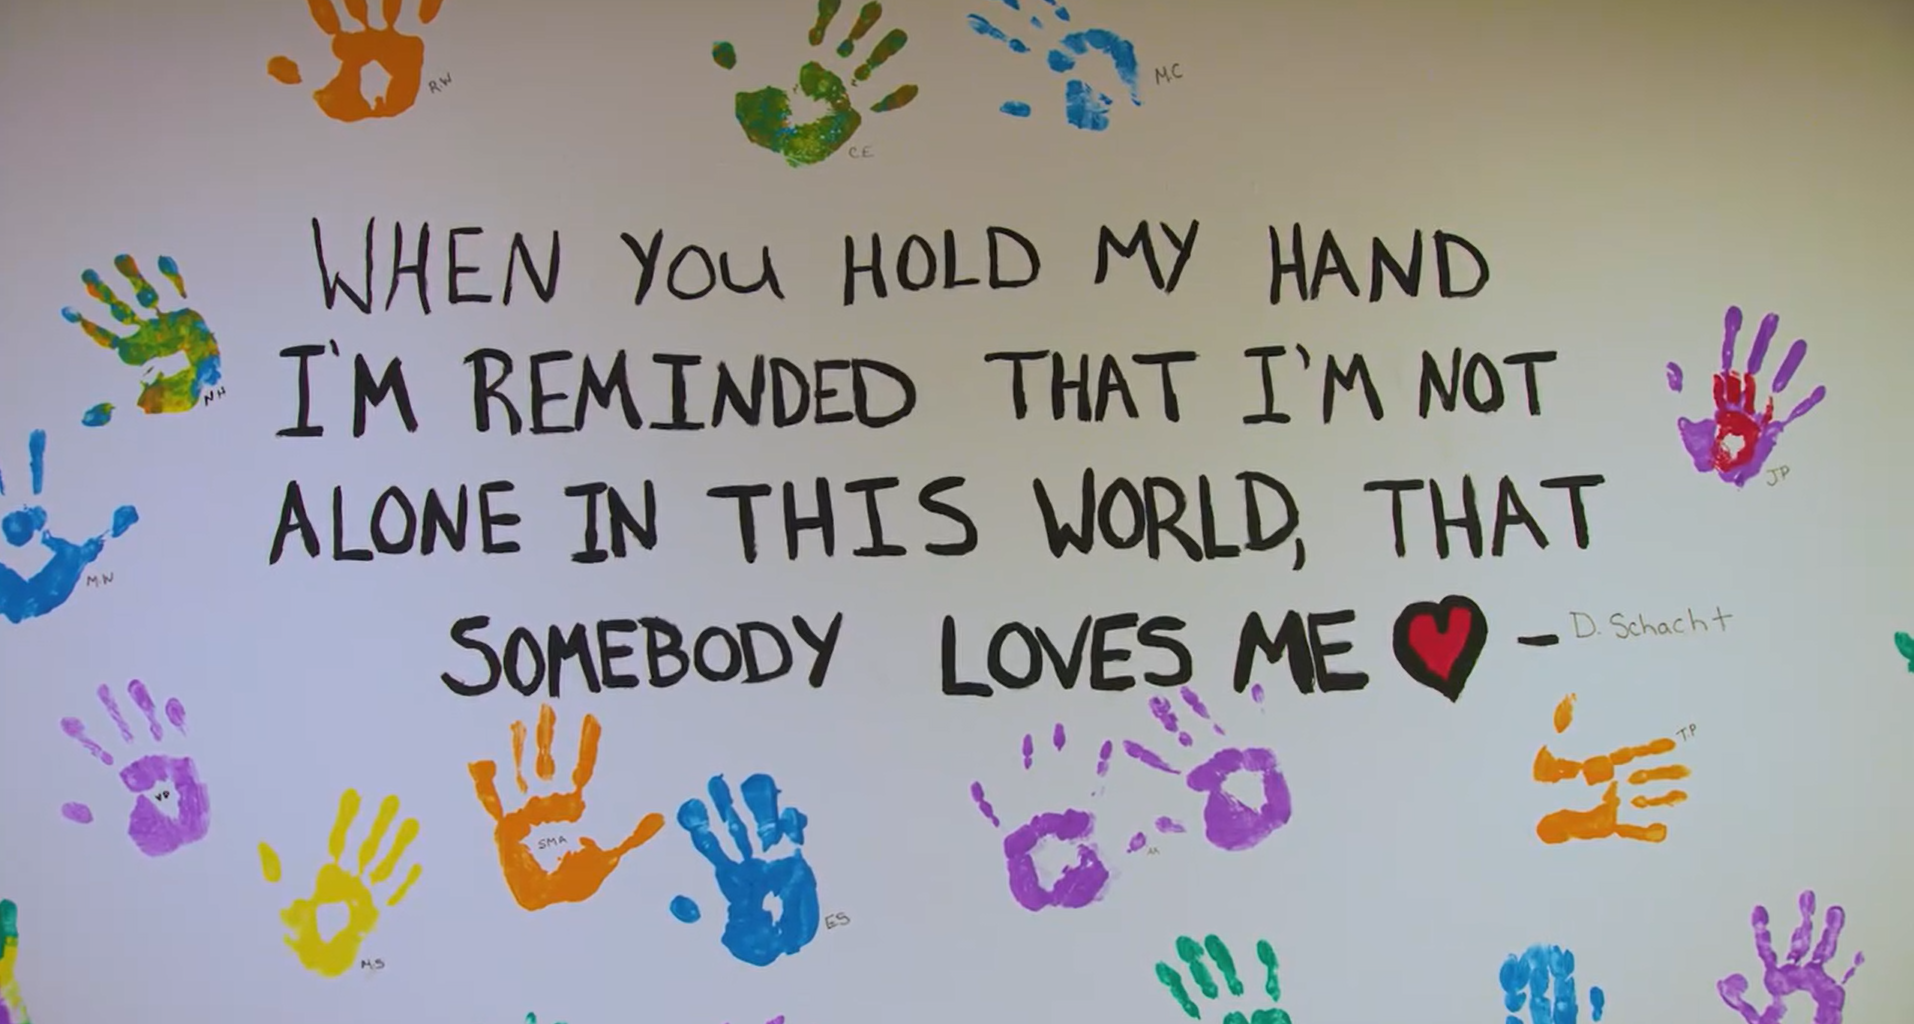 R.W
C.E
M.C
WHEN YOU HOLD MY HAND
I'M REMINDED THAT I'M NOT
ALONE IN THIS WORLD, THAT
SOMEBODY LOVES ME ❤ – D. Schacht
NH
JP
M.W
T.P
VP
SMA
ES
M.S